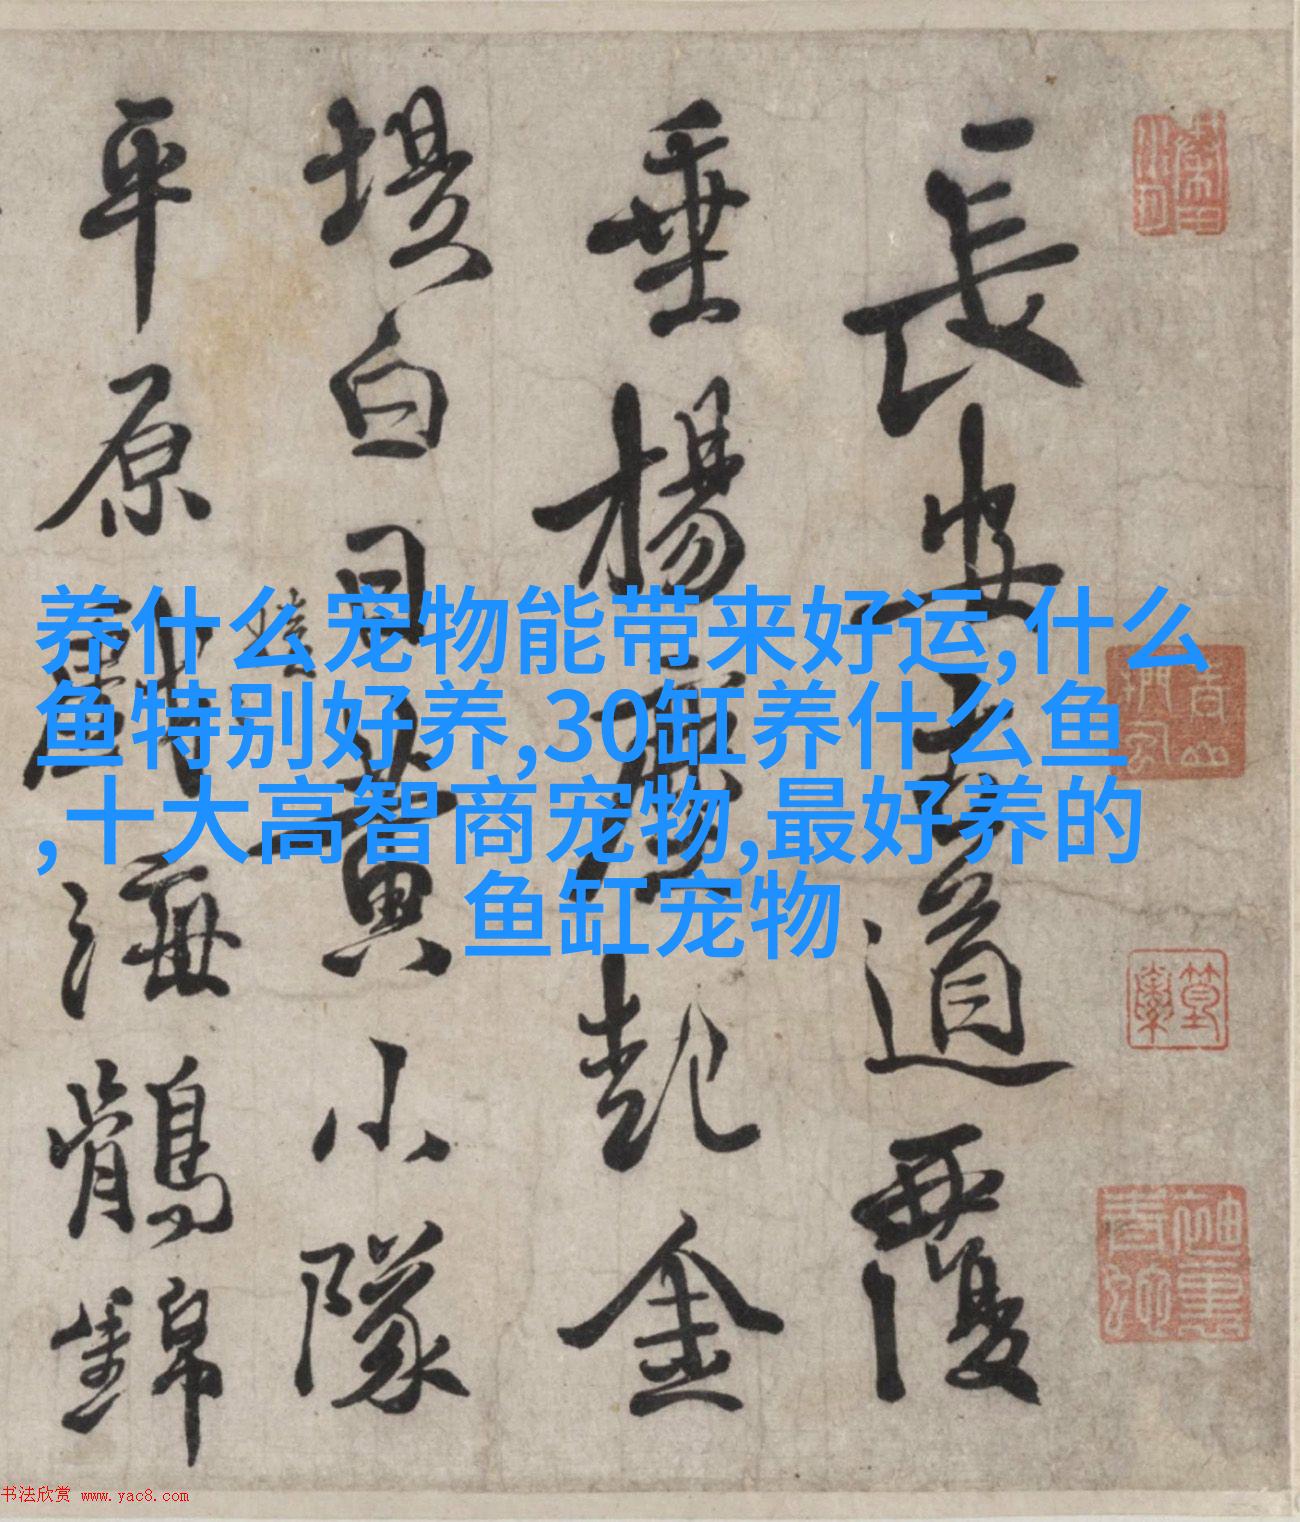 長安道覆
垂楊起金
堤白日黄小隊
平原海鶻錦
养什么宠物能带来好运,什么
鱼特别好养,30缸养什么鱼
,十大高智商宠物,最好养的
鱼缸宠物
书法欣赏 www.yac8.com